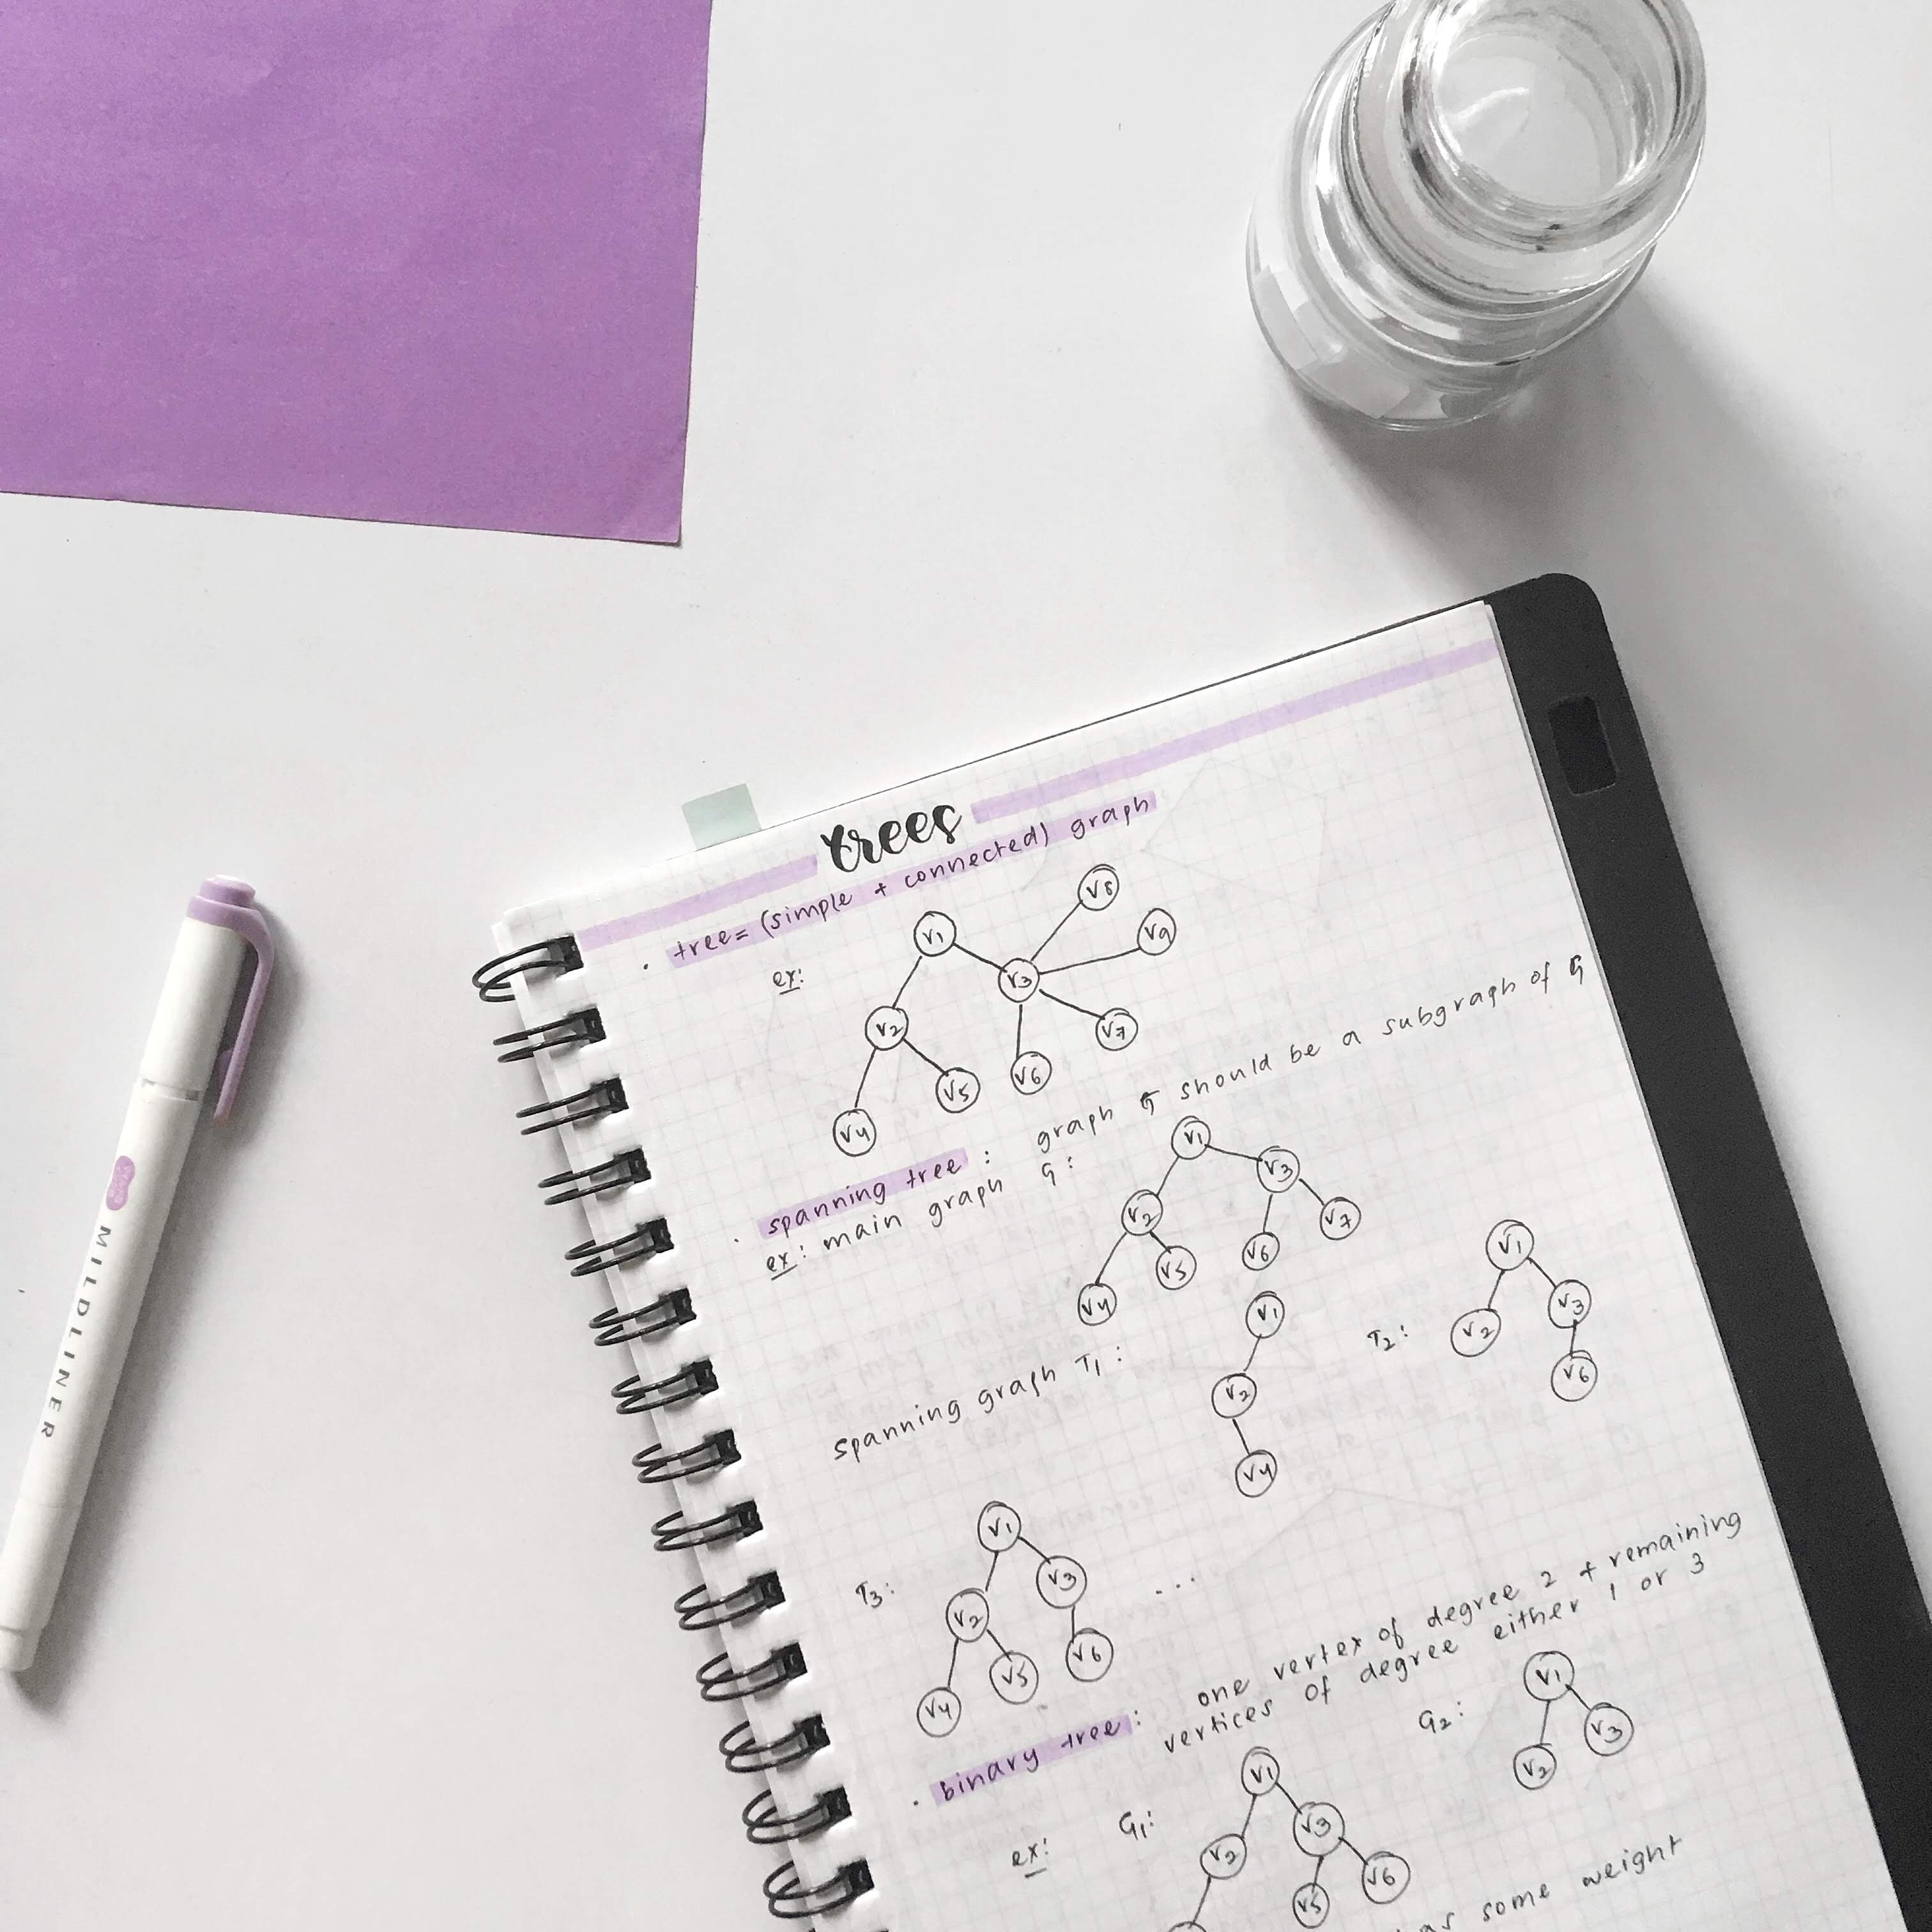 trees
· tree = (simple + connected) graph
ex:
v1
v8
v9
v3
v2
v7
v6
v5
v4
· spanning tree : graph G should be a subgraph of G
ex: main graph G:
v1
v3
v2
v7
v6
v5
v4
spanning graph T1 :
v1
v2
v4
T2:
v1
v3
v2
v6
T3:
v1
v3
v2
v6
v5
v4
...
· binary tree : one vertex of degree 2 + remaining
vertices of degree either 1 or 3
ex:
G1:
v1
v3
v2
v6
v5
G2:
v1
v3
v2
some weight
MILDLINER